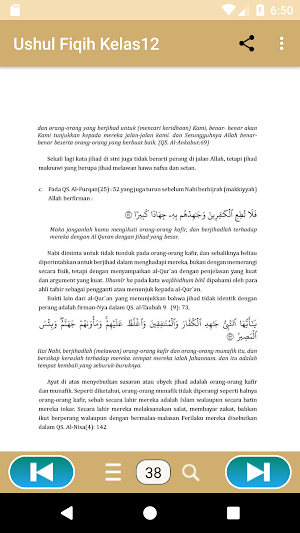 6:50
Ushul Fiqih Kelas12
dan orang-orang yang berjihad untuk (mencari keridhaan) Kami, benar- benar akan
Kami tunjukkan kepada mereka jalan-jalan kami. dan Sesungguhnya Allah benar-
benar beserta orang-orang yang berbuat baik. (QS. Al-Ankabut:69)
Sekali lagi kata jihad di sini juga tidak berarti perang di jalan Allah, tetapi jihad
maknawi yang berupa jihad melawan hawa nafsu dan setan.
c. Pada QS. Al-Furqan(25) : 52 yang juga turun sebelum Nabi berhijrah (makkiyyah)
Allah berfirman :
فَلَا تُطِعِ ٱلْكَٰفِرِينَ وَجَٰهِدْهُم بِهِۦ جِهَادًا كَبِيرًا ۝
Maka janganlah kamu mengikuti orang-orang kafir, dan berjihadlah terhadap
mereka dengan Al Quran dengan jihad yang besar.
Nabi diminta untuk tidak tunduk pada orang-orang kafir, dan sebaliknya beliau
diperintahkan untuk berjihad dalam menghadapi mereka, bukan dengan memerangi
secara fisik, tetapi dengan menyampaikan al-Qur'an dengan penjelasan yang kuat
dan argument yang kuat. Dhamir ha pada kata wajâhidhum bihî dipahami oleh para
ahli tafsir sebagai pengganti atau menunjuk kepada al-Qur'an.
Bukti lain dari al-Qur'an yang menunjukkan bahwa jihad tidak identik dengan
perang adalah firman-Nya dalam QS. al-Taubah 9 (9): 73,
يَٰٓأَيُّهَا ٱلنَّبِىُّ جَٰهِدِ ٱلْكُفَّارَ وَٱلْمُنَٰفِقِينَ وَٱغْلُظْ عَلَيْهِمْ ۚ وَمَأْوَىٰهُمْ جَهَنَّمُ ۖ وَبِئْسَ
ٱلْمَصِيرُ ۝
Hai Nabi, berjihadlah (melawan) orang-orang kafir dan orang-orang munafik itu, dan
bersikap keraslah terhadap mereka. tempat mereka ialah Jahannam. dan itu adalah
tempat kembali yang seburuk-buruknya.
Ayat di atas menyebutkan sasaran atau obyek jihad adalah orang-orang kafir
dan munafik. Seperti diketahui, orang-orang munafik tidak diperangi seperti halnya
orang-orang kafir, sebab secara lahir mereka adalah Islam walaupun secara batin
mereka inkar. Secara lahir mereka melaksanakan salat, membayar zakat, bahkan
ikut berperang walaupun dengan bermalas-malasan Perilaku mereka disebutkan
dalam QS. Al-Nisa(4): 142
38